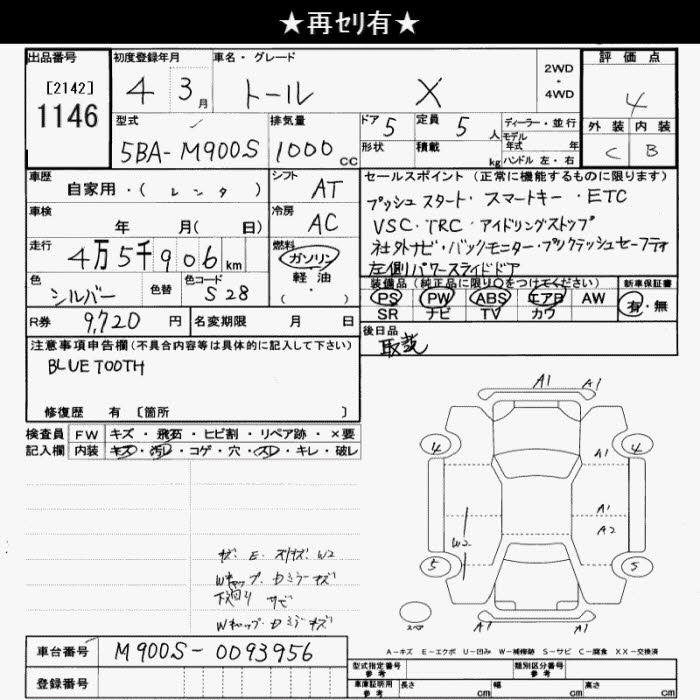 ★再ｾﾘ有★
出品番号 初度登録年月 車名・グレード 2WD・4WD 評価点
[2142] 4 3月 トール X 4
1146
型式 排気量 ドア 5 定員 5人 ディーラー・並行 外装 内装
5BA-M900S 1000cc 形状 積載 kg モデル年式 年 ハンドル 左・右 C B
車歴 自家用・(レンタ) シフト AT セールスポイント(正常に機能するものに限ります)
プッシュスタート・スマートキー・ETC
車検 年 月(日) 冷房 AC VSC・TRC・アイドリングストップ
走行 4万5千906km 燃料 ガソリン 軽油 (・) 社外ナビ・バックモニター・プリクラッシュセーフティ
左側パワースライドドア
色 シルバー 色替 色コード S28 装備品(純正品に限り○をつけてください) 新車保証書
PS PW ABS エアB AW 有・無
R券 9,720円 名変期限 月 日 SR ナビ TV カワ
注意事項申告欄(不具合内容等は具体的に記入して下さい) 後日品
取説
BLUETOOTH
修復歴 有 〔箇所 〕
検査員 FW キズ・飛石・ヒビ割・リペア跡・×要
記入欄 内装 キズ・汚レ・コゲ・穴・スレ・キレ・破レ
A1 A1
4 4
A1
A1
A2
W2
5 5
スペ A1 A1
E W2
Wキャップ・Dミラーキズ
下廻リ サビ
Wキャップ・Dミラーキズ
A－キズ E－エクボ U－凹み W－補修跡 S－サビ C－腐食 XX－交換済
車台番号 M900S-0093956
型式指定番号 参考 類別区分番号 参考
登録番号 車庫証明用 参考 長さ cm 幅 cm 高さ cm